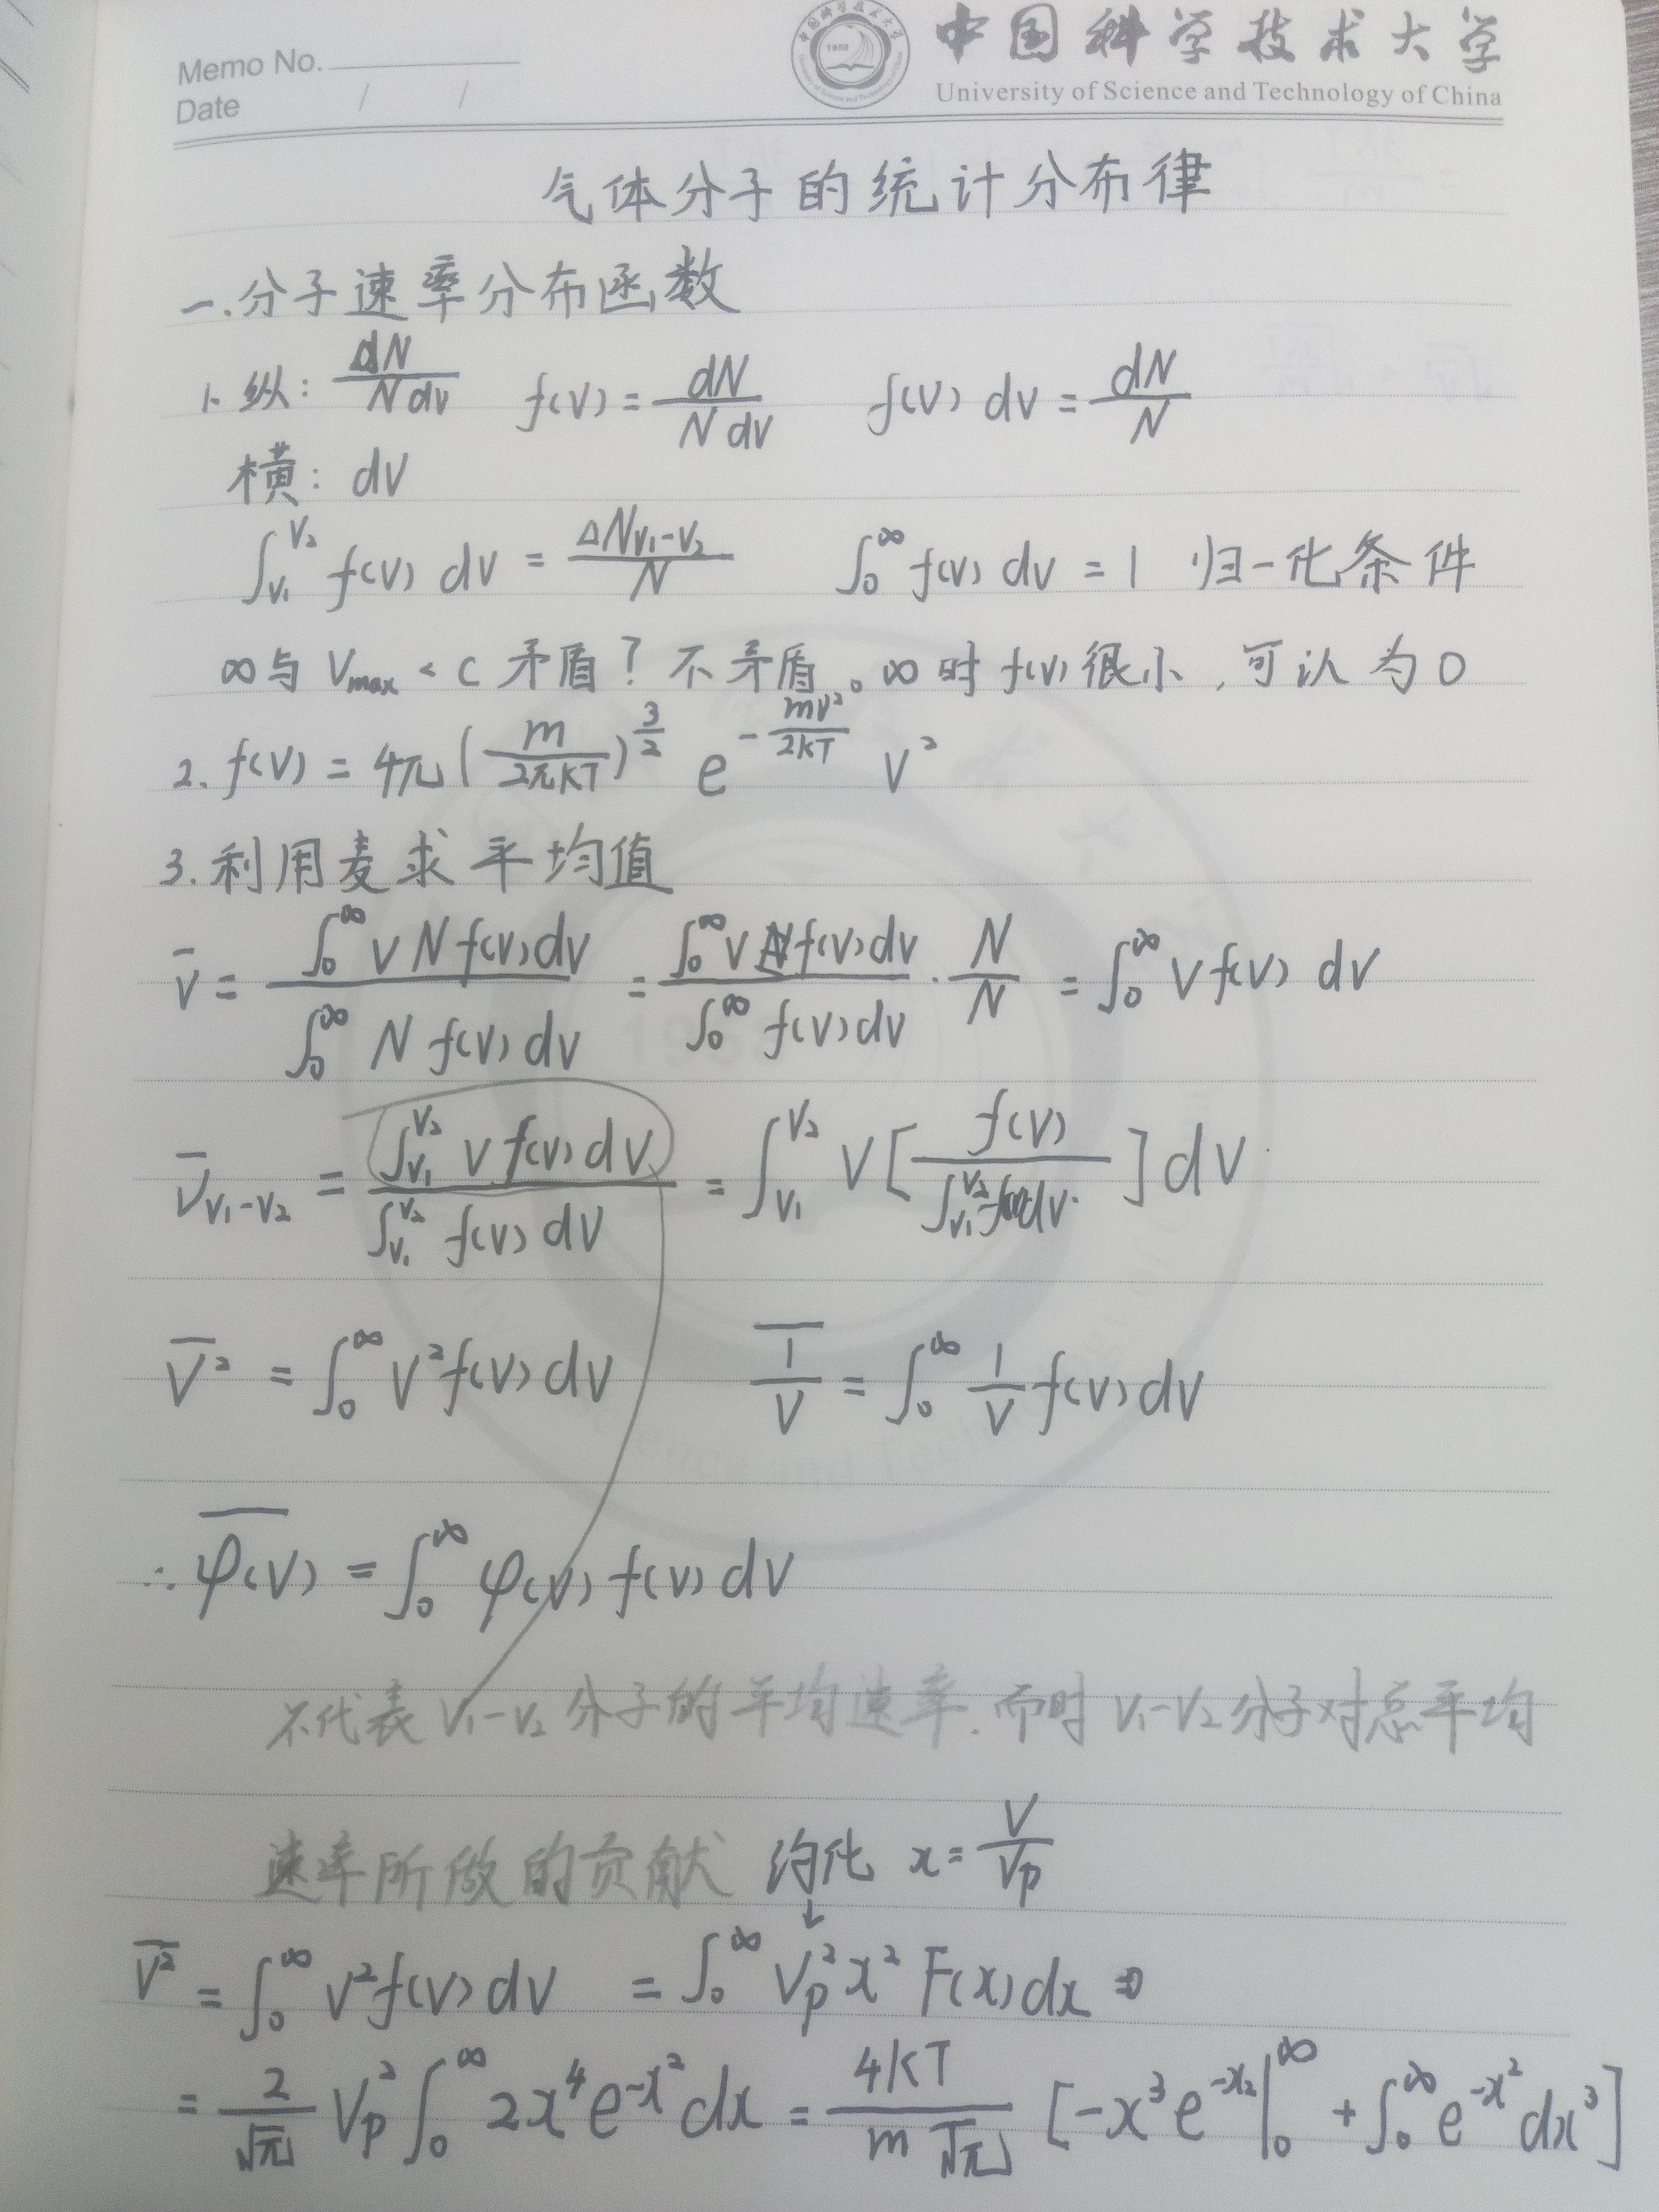 Memo No.
Date / /
中国科学技术大学
University of Science and Technology of China
气体分子的统计分布律
一.分子速率分布函数
1. 纵: dN/(N dv) f(V) = dN/(N dV) f(V) dv = dN/N
横: dV
∫_{V₁}^{V₂} f(V) dV = ΔN_{V₁-V₂}/N ∫_0^∞ f(V) dV = 1 归一化条件
∞与 Vmax < C 矛盾? 不矛盾。∞时 f(V) 很小, 可认为0
2. f(V) = 4π (m/(2πKT))^{3/2} e^{-mV²/(2KT)} V²
3. 利用麦求平均值
v̄ = ∫_0^∞ V N f(V) dV / ∫_0^∞ N f(V) dV = ∫_0^∞ V f(V) dV / ∫_0^∞ f(V) dV · N/N = ∫_0^∞ V f(V) dV
v̄_{V₁-V₂} = ∫_{V₁}^{V₂} V f(V) dV / ∫_{V₁}^{V₂} f(V) dV = ∫_{V₁}^{V₂} V [ f(V) / ∫_{V₁}^{V₂} f(V) dV ] dV
V̄² = ∫_0^∞ V² f(V) dV \overline{1/V} = ∫_0^∞ 1/V f(V) dV
∴ \overline{φ(V)} = ∫_0^∞ φ(V) f(V) dV
不代表 V₁-V₂ 分子的平均速率.而时 V₁-V₂ 分子对总平均
速率所做的贡献 约化 x = V/Vp
↓
\overline{V²} = ∫_0^∞ V² f(V) dV = ∫_0^∞ Vp² x² F(x) dx
= 2/√π Vp² ∫_0^∞ 2x⁴ e^{-x²} dx = 4KT/(m√π) [ -x³ e^{-x2} |_0^∞ + ∫_0^∞ e^{-x²} dx³ ]